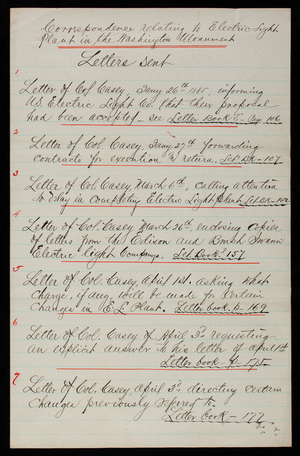 Correspondence relating to Electric Light
Plant in the Washington Monument
Letters sent
1
Letter of Col Casey, Jany 26th 1885, informing
U.S. Electric Light Co. that their proposal
had been accepted - see Letter Book E. Pag 106
2
Letter of Col. Casey, Jany 27th forwarding
contracts for execution & return. Let. Bk - 107
3
Letter of Col Casey March 6th, calling attention
to delay in completing Electric Light Plant Let Bk
4
Letter of Col. Casey March 26th, enclosing copies
of letters from the Edison and Brush Swann
Electric Light Companys. Let. Book 157
5
Letter of Col. Casey, April 1st. asking what
charge, if any, will be made for certain
changes in E. L. Plant. Letter book p. 169
6
Letter of Col. Casey of April 3d requesting
an explicit answer to his letter of April 1st
Letter book p. 175
7
Letter of Col. Casey April 3d. directing certain
changes previously refered to.
Letter book - 177